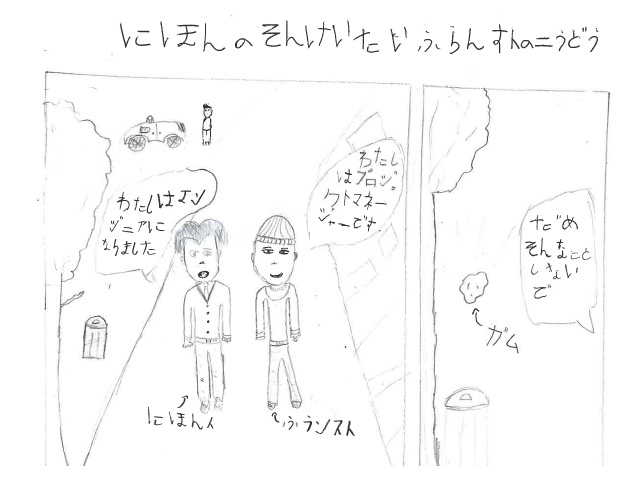 にほんのそんけいたいふらんすんのこうどう
わたしはエン
ジニアに
なりました
わたし
はプロジェ
クトマネー
ジャーです
にほん人
ふランスト
だめ
そんなこと
しない
で
ガム